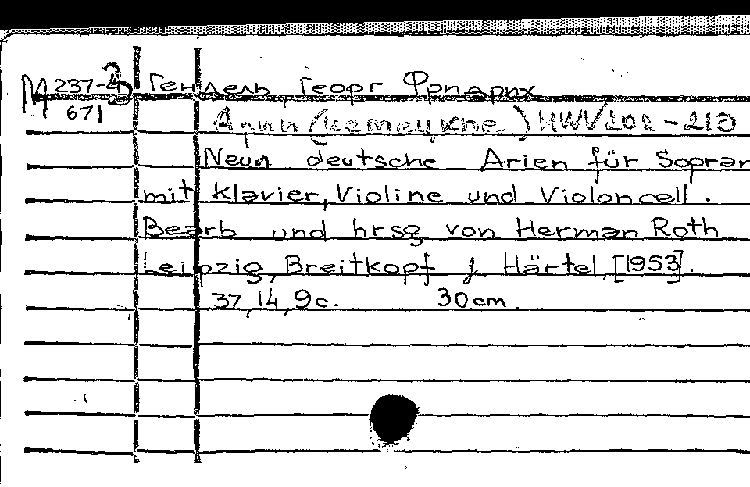 М 237-3 Гендель, Георг Фридрих
671
Арии (немецкие) HWV 202-210
Neun deutsche Arien für Sopran
mit Klavier, Violine und Violoncell.
Bearb und hrsg von Herman Roth
Leipzig, Breitkopf Härtel, [1953].
37, 14, 9 с. 30 cm.